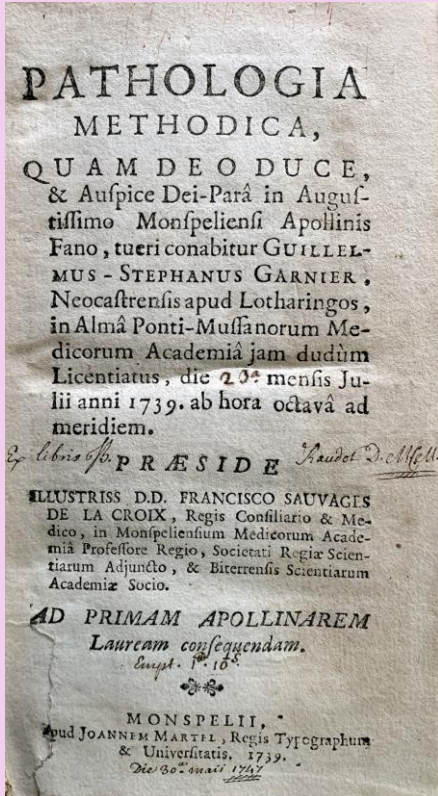 PATHOLOGIA
METHODICA,
QUAM DEO DUCE,
& Auſpice Dei-Parâ in Auguſ-
tiſſimo Monſpelienſi Apollinis
Fano, tueri conabitur GUILLEL-
MUS-STEPHANUS GARNIER,
Neocaſtrenſis apud Lotharingos,
in Almâ Ponti-Muſſanorum Me-
dicorum Academiâ jam dudùm
Licentiatus, die 20ª menſis Ju-
lii anni 1739. ab hora octavâ ad
meridiem.
Ex libris
PRÆSIDE
ILLUSTRISS D.D. FRANCISCO SAUVAGES
DE LA CROIX, Regis Conſiliario & Me-
dico, in Monſpelienſium Medicorum Acade-
miâ Profeſſore Regio, Societati Regiæ Scien-
tiarum Adjuncto, & Biterrenſis Scientiarum
Academiæ Socio.
AD PRIMAM APOLLINAREM
Lauream conſequendam.
Empt.
MONSPELII,
Apud JOANNEM MARTEL, Regis Typographum
& Univerſitatis, 1739.
Die 30ª maii 1747